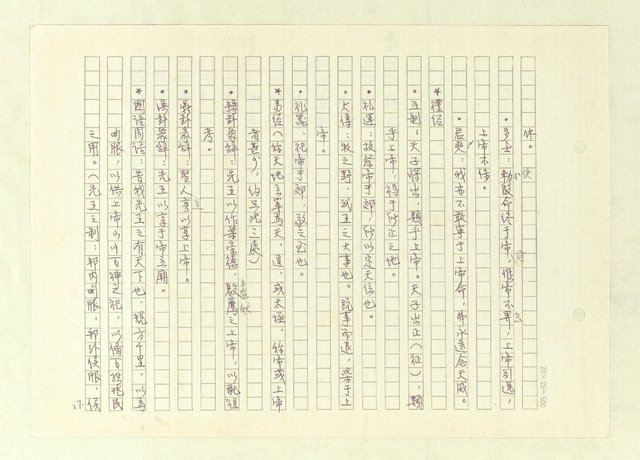 休。
•多士：勑殷命終于帝，惟帝不畀，上帝引逸，
上帝不保。
•君奭：我亦不敢寧于上帝命，弗永遠念天威。
*禮經
•王制：天子將出，類乎上帝。天子出正（征），類
乎上帝，禱于所征之地。
•礼運：故祭帝于郊，所以定天位也。
•大傳：牧之野，武王之大事也。既事而退，柴于上
帝。
•礼器：祀帝于郊，敬之至也。
*易經（称天地言單為天、道、或太極，称帝或上帝
者甚少，約只此三處）
•豫卦象辭：先王以作樂崇德，殷薦之上帝，以配祖
考。
•鼎卦彖辭：聖人亨以享上帝。
•渙卦象辭：先王以享于帝立廟。
*國語周語：昔我先王之有天下也，規方千里，以為
甸服，以供上帝山川百神之祀，以備百姓兆民
之用。（先王之制：邦內甸服，邦外侯服，侯
17.
20×25=500